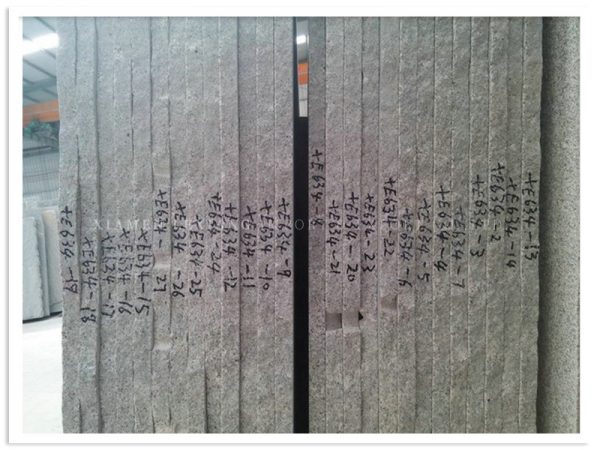 +E634-19
+E634-18
+E634-17
+E634-16
+E634-15
+E634-27
+E634-26
+E634-25
+E634-24
+E634-12
+E634-11
+E634-10
+E634-9
+E634-21
+E634-20
+E634-23
+E634-22
+E634-6
+E634-5
+E634-4
+E634-7
+E634-3
+E634-2
+E634-14
+E634-13